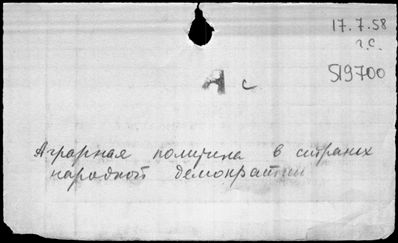 17.7.58
г.с.
519700
А с
Аграрная политика в странах
народной демократии